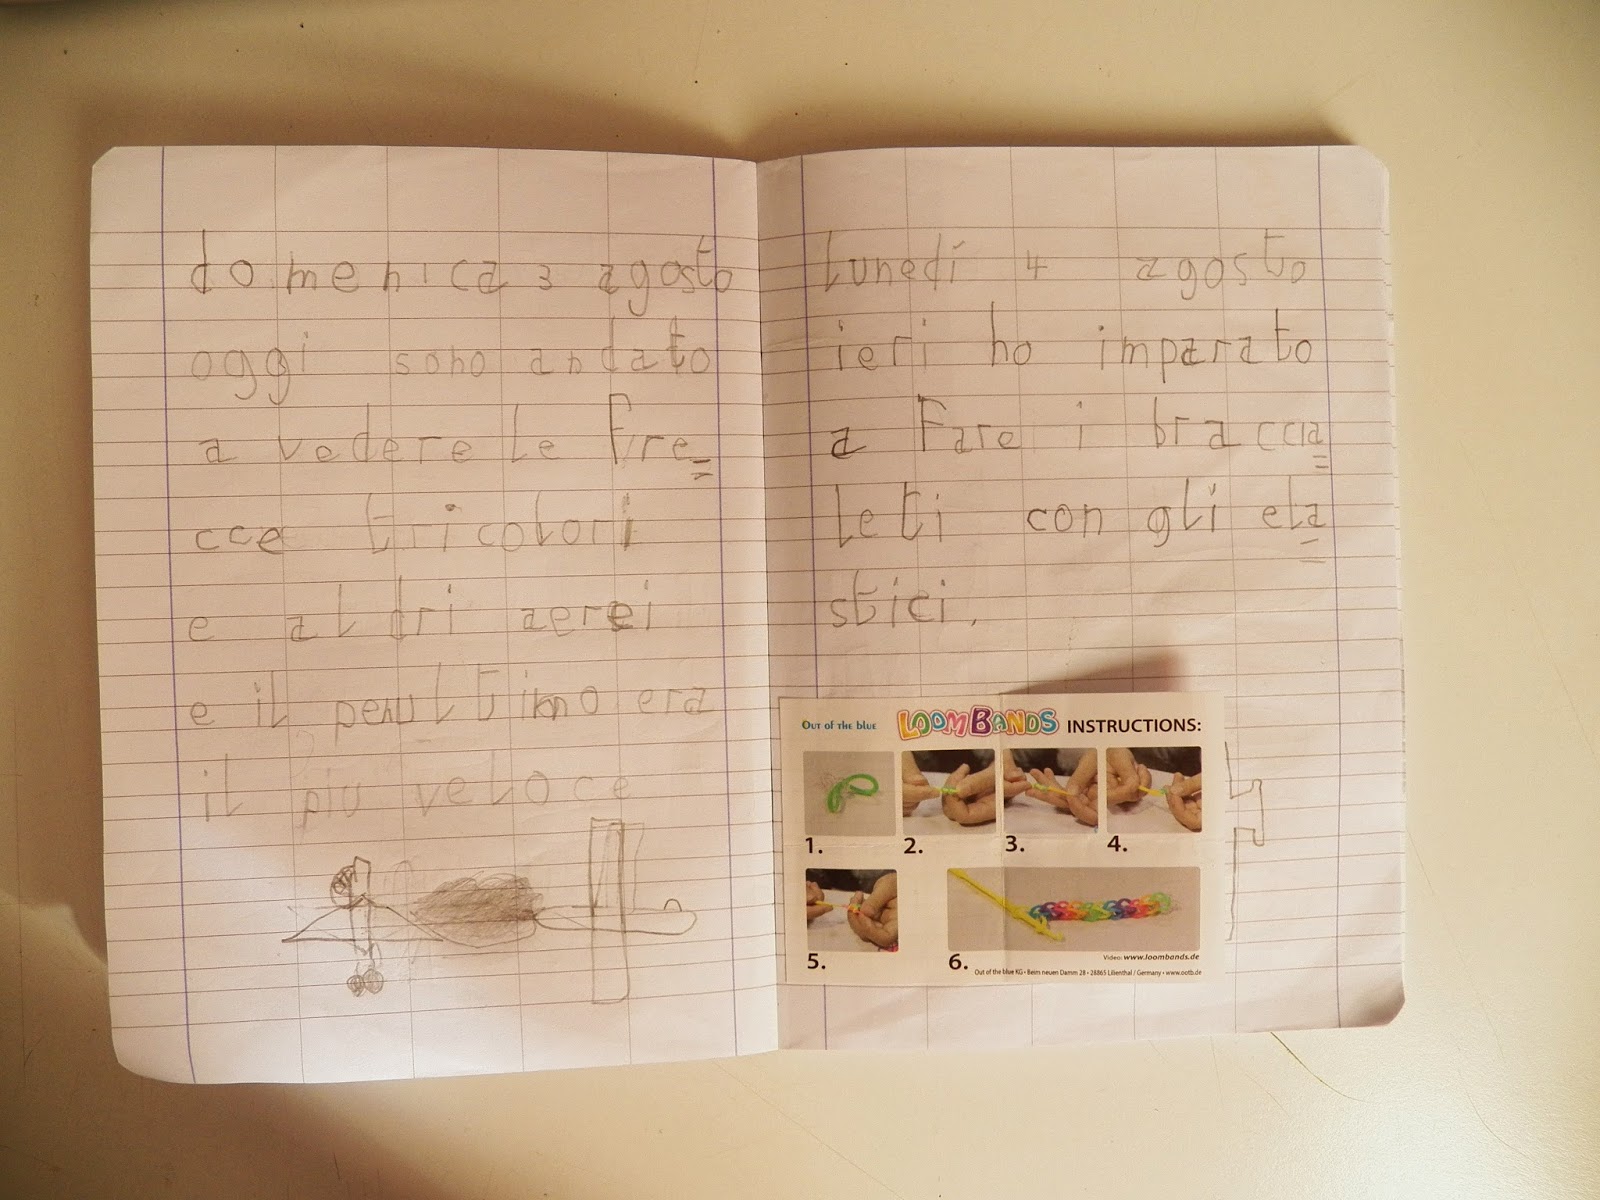 domenica 3 agosto
oggi sono andato
a vedere le Fre=
cce tricolori
e aldri aerei
e il penultimo era
il piu veloce
lunedí 4 agosto
ieri ho imparato
a Fare i braccia=
leti con gli ela=
stici.
OUT OF THE BLUE LOOM BANDS INSTRUCTIONS:
1. 2. 3. 4.
5. 6.
Video: www.loombands.de
Out of the blue KG • Beim neuen Damm 28 • 28865 Lilienthal / Germany • www.ootb.de